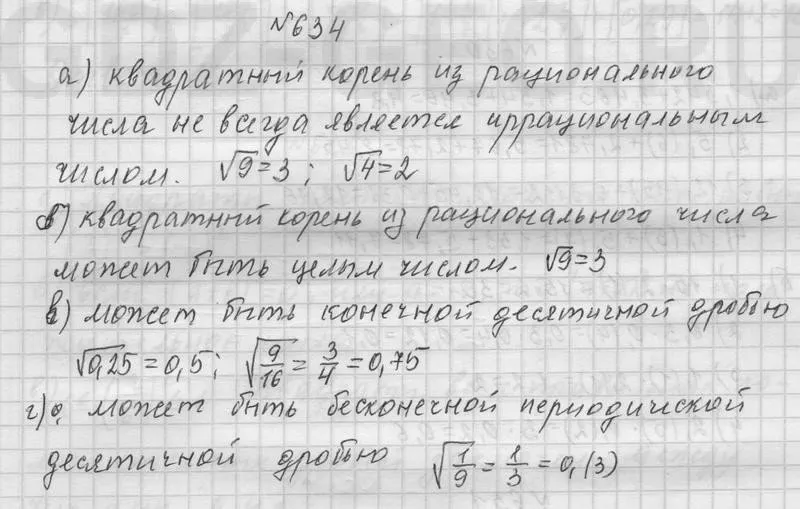 №634
а) квадратный корень из рационального
числа не всегда является иррациональным
числом. √9=3; √4=2
б) квадратный корень из рационального числа
может быть целым числом. √9=3
в) может быть конечной десятичной дробью
√0,25 = 0,5; √9/16 = 3/4 = 0,75
г) может быть бесконечной периодической
десятичной дробью √1/9 = 1/3 = 0,(3)